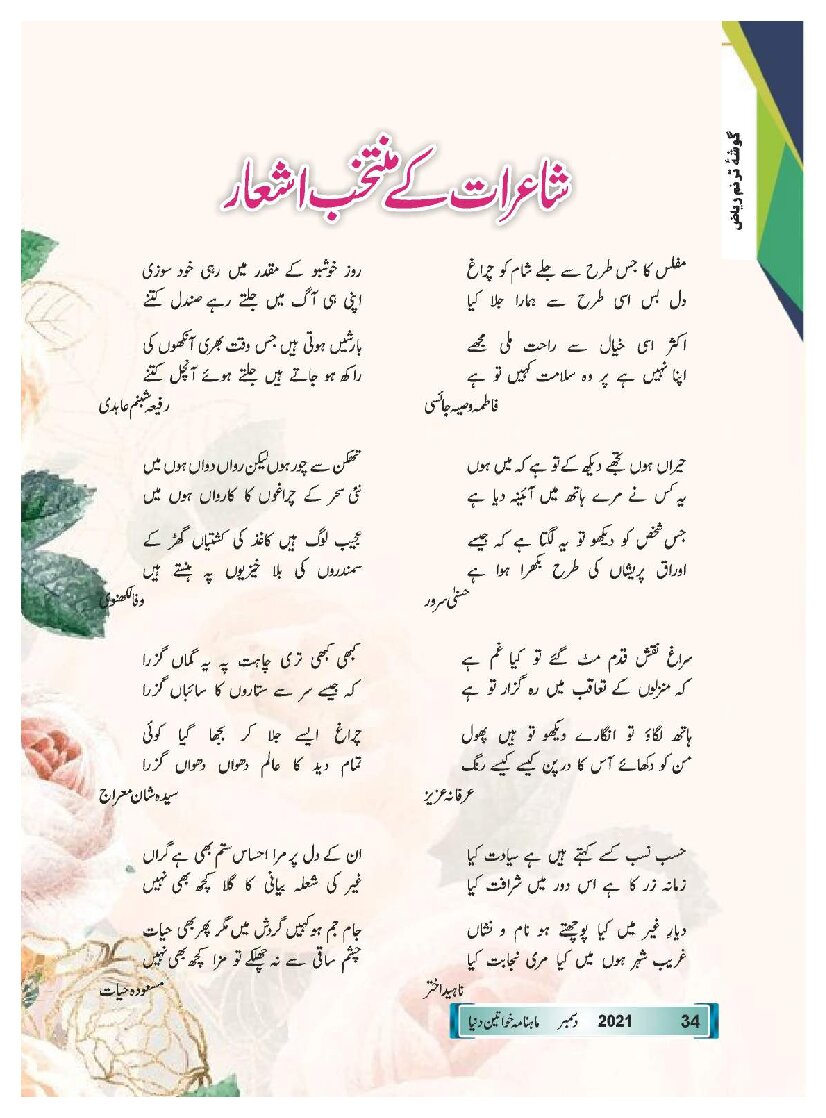 گوشۂ ترنم ریاض
شاعرات کے منتخب اشعار
مفلس کا جس طرح سے جلے شام کو چراغ
دل بس اسی طرح سے ہمارا جلا کیا
اکثر اسی خیال سے راحت ملی مجھے
اپنا نہیں ہے پر وہ سلامت کہیں تو ہے
فاطمہ وصیہ جائسی
حیراں ہوں تجھے دیکھ کے تو ہے کہ میں ہوں
یہ کس نے مرے ہاتھ میں آئینہ دیا ہے
جس شخص کو دیکھو تو یہ لگتا ہے کہ جیسے
اوراق پریشاں کی طرح بکھرا ہوا ہے
حسنیٰ سرور
سراغ نقش قدم مٹ گئے تو کیا غم ہے
کہ منزلوں کے تعاقب میں رہ گزار تو ہے
ہاتھ لگاؤ تو انگارے دیکھو تو ہیں پھول
من کو دکھائے آس کا درپن کیسے کیسے رنگ
عرفانہ عزیز
حسب نسب کسے کہتے ہیں ہے سیادت کیا
زمانہ زر کا ہے اس دور میں شرافت کیا
دیار غیر میں کیا پوچھتے ہو نام و نشاں
غریب شہر ہوں میں کیا مری نجابت کیا
ناہید اختر
روز خوشبو کے مقدر میں رہی خود سوزی
اپنی ہی آگ میں جلتے رہے صندل کتنے
بارشیں ہوتی ہیں جس وقت بھری آنکھوں کی
راکھ ہو جاتے ہیں جلتے ہوئے آنچل کتنے
رفیعہ شبنم عابدی
تھکن سے چور ہوں لیکن رواں دواں ہوں میں
نئی سحر کے چراغوں کا کارواں ہوں میں
عجیب لوگ ہیں کاغذ کی کشتیاں گھڑ کے
سمندروں کی بلا خیزیوں پہ ہنستے ہیں
وفا لکھنوی
کبھی کبھی تری چاہت پہ یہ گماں گزرا
کہ جیسے سر سے ستاروں کا سائباں گزرا
چراغ ایسے جلا کر بجھا گیا کوئی
تمام دید کا عالم دھواں دھواں گزرا
سیدہ شان معراج
ان کے دل پر مرا احساس ستم بھی ہے گراں
غیر کی شعلہ بیانی کا گلا کچھ بھی نہیں
جام جم ہو کہیں گردش میں مگر پھر بھی حیات
چشم ساقی سے نہ چھلکے تو مزا کچھ بھی نہیں
مسعودہ حیات
ماہنامہ خواتین دنیا دسمبر 2021 34